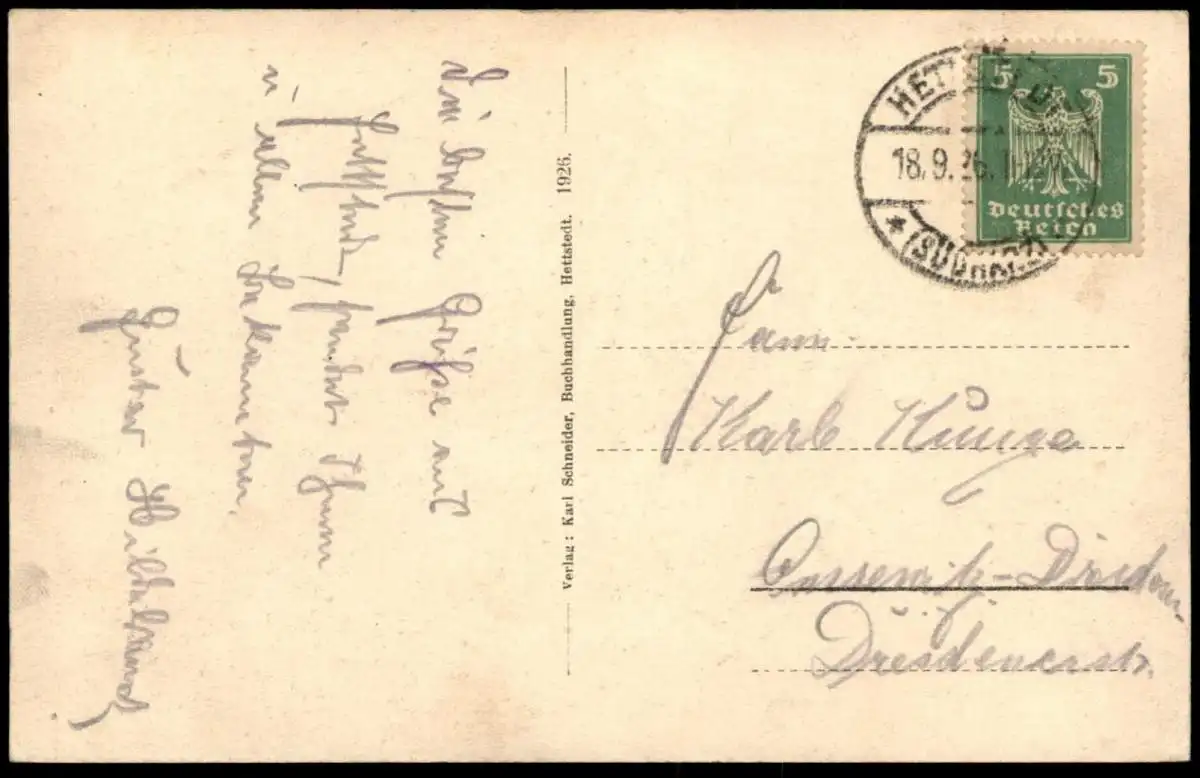 Die besten Grüße aus
Hettstedt, sendet Ihnen
u. allen Bekannten.
Gustav Hildebrand
Verlag: Karl Schneider, Buchhandlung, Hettstedt. 1926.
HETTSTEDT
18.9.26.
* (SÜDHARZ)
5 5
Deutsches
Reich
Karl Kunze
Cossewitz-Dresden
Dresdenerstr.